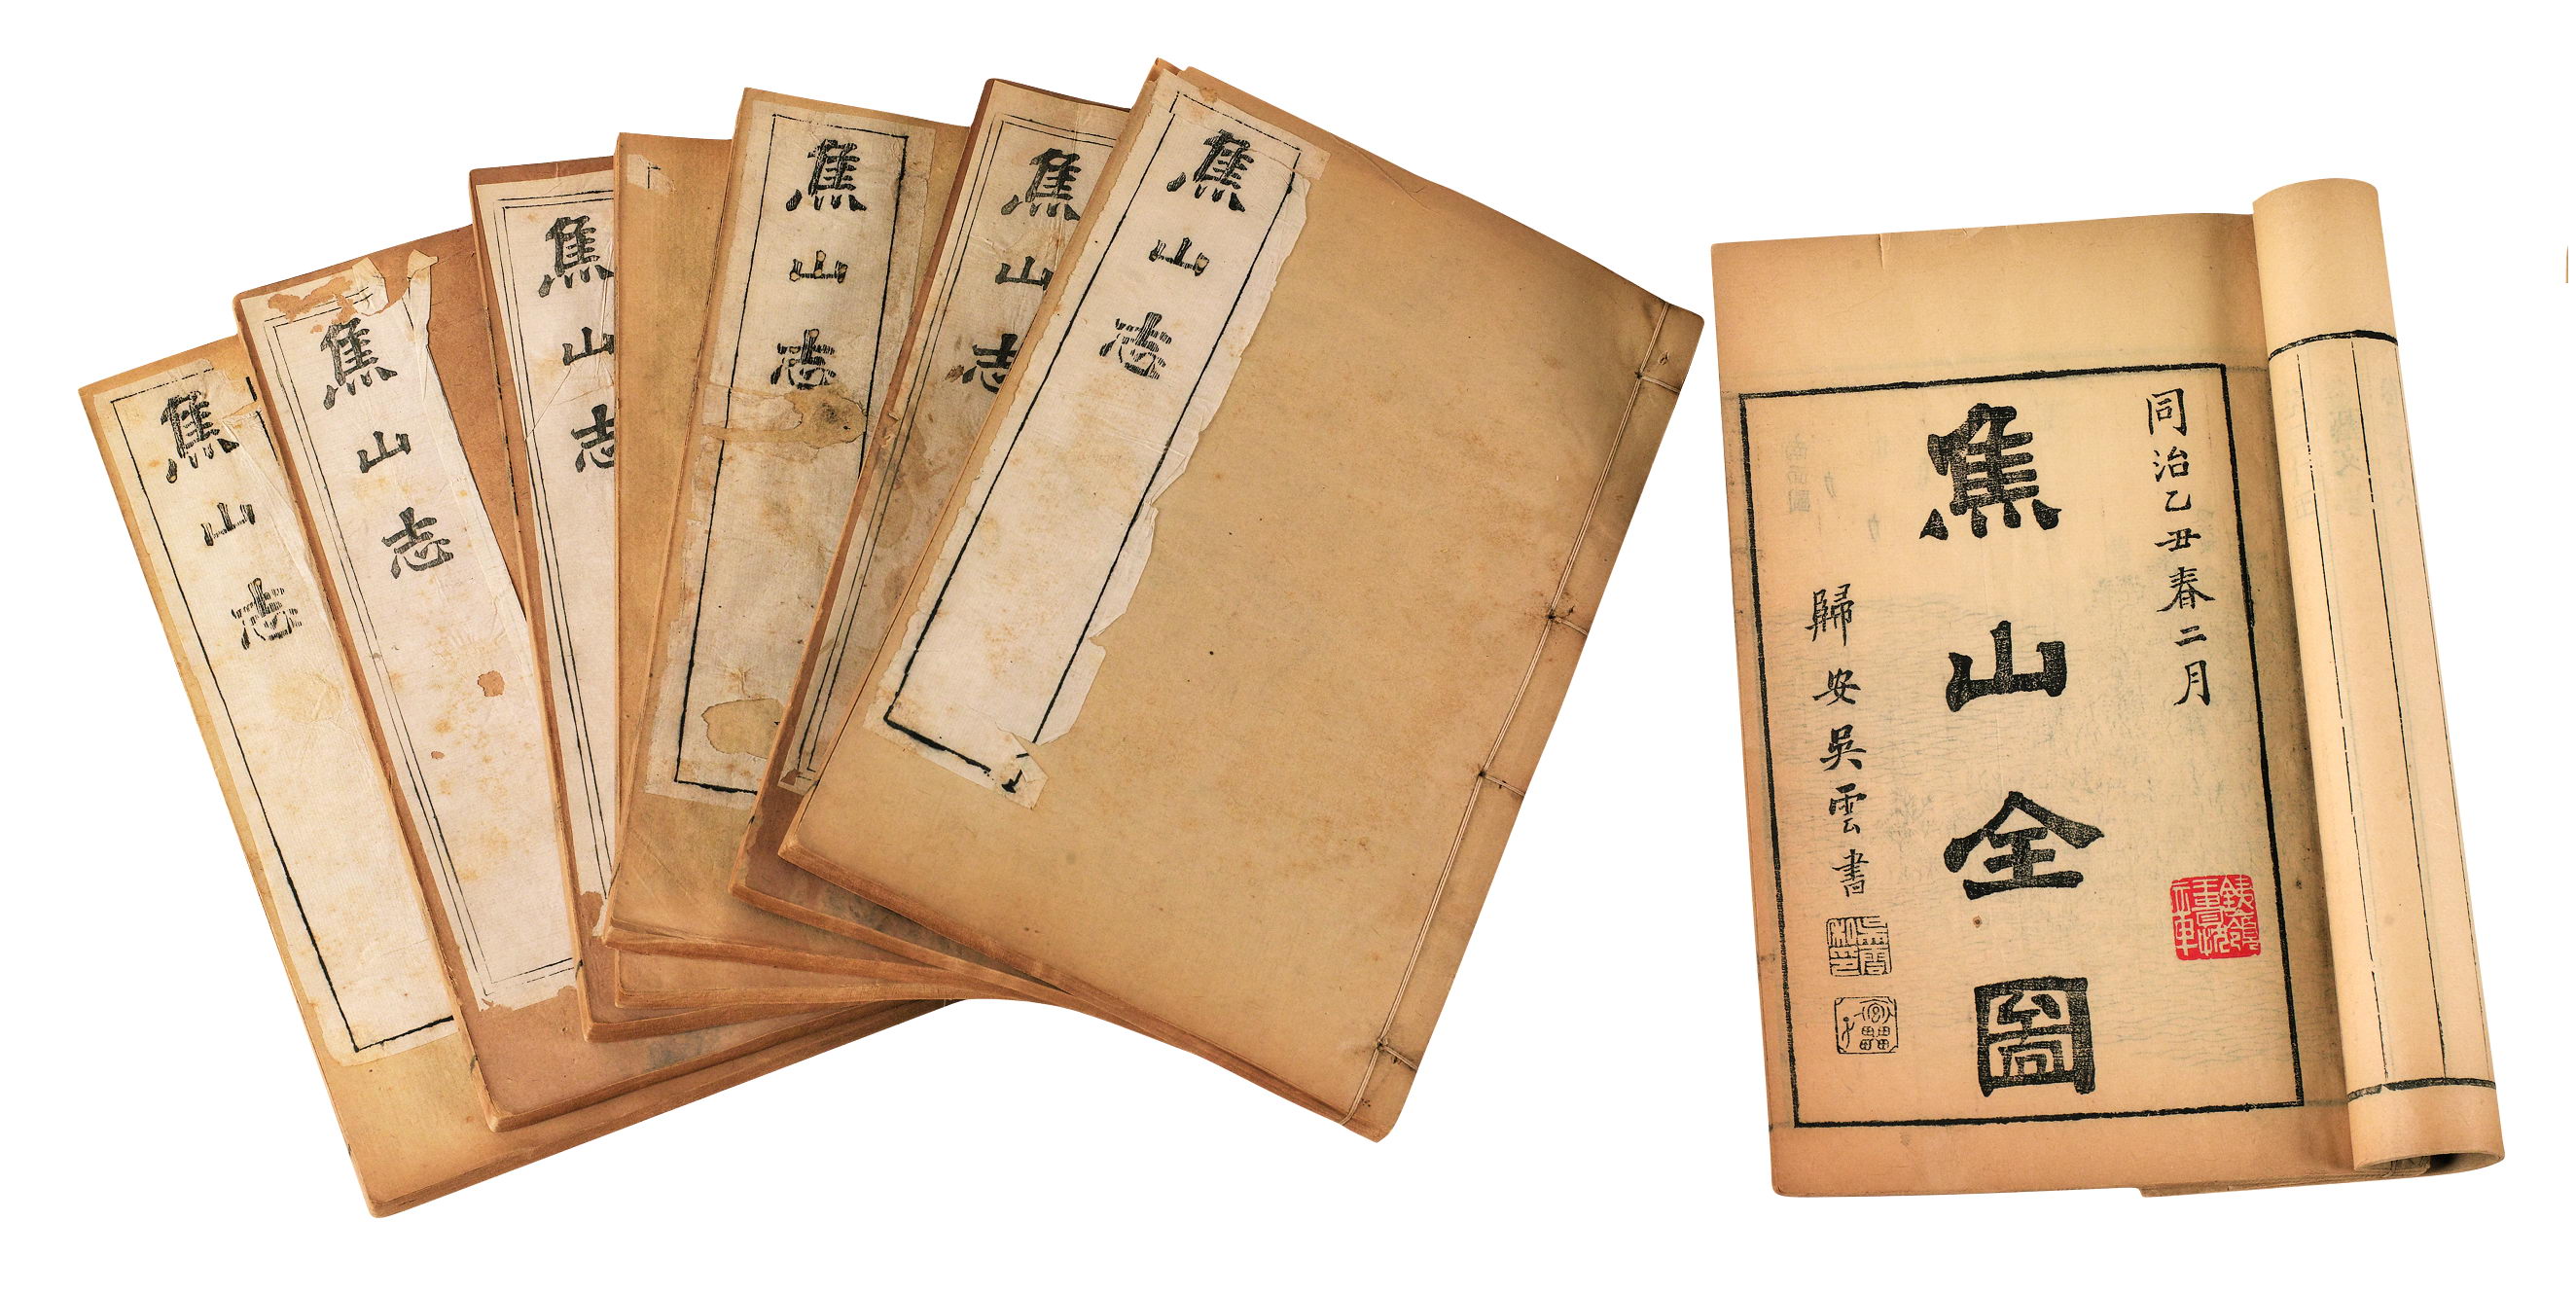 焦山志
焦山志
焦山志
焦山志
焦山志
焦山志
同治乙丑春二月
焦山全圖
歸安吳雲書